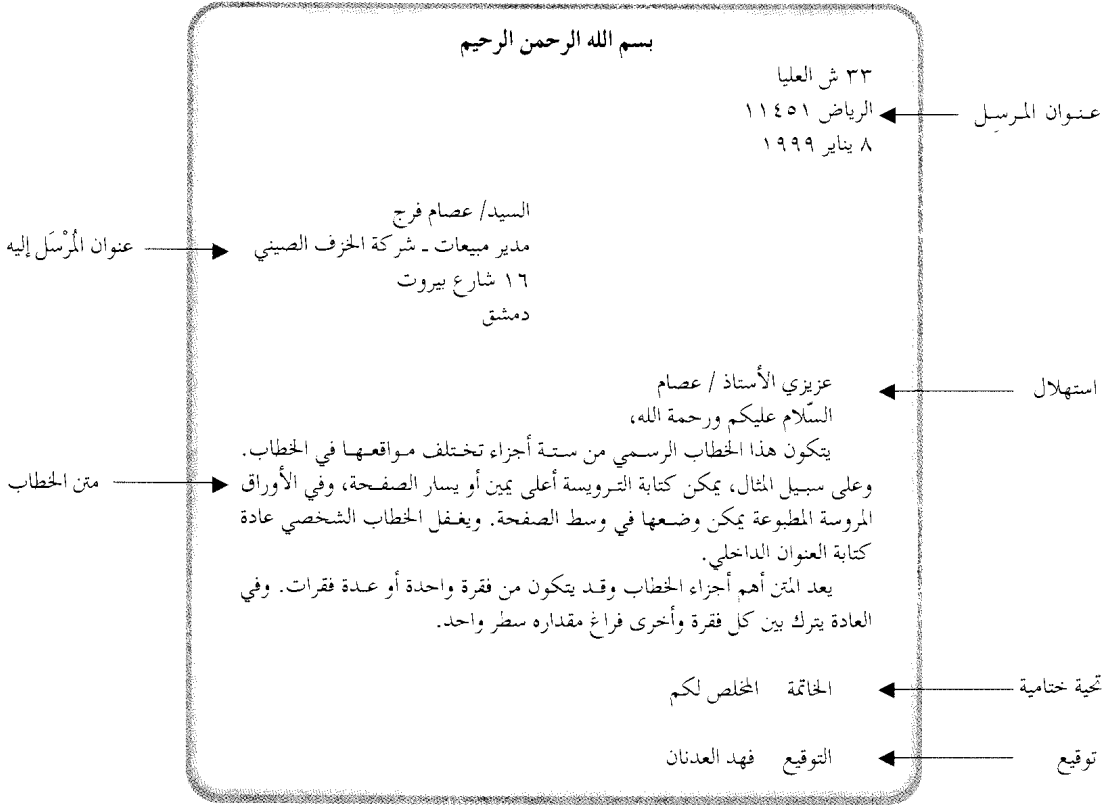 بسم الله الرحمن الرحيم
٣٣ ش العليا
الرياض ١١٤٥١
عنوان المرسِل
٨ يناير ١٩٩٩
السيد/ عصام فرج
مدير مبيعات ـ شركة الخزف الصيني
عنوان المُرْسَل إليه
١٦ شارع بيروت
دمشق
استهلال
عزيزي الأستاذ / عصام
السّلام عليكم ورحمة الله،
يتكون هذا الخطاب الرسمي من ستة أجزاء تختلف مواقعها في الخطاب.
وعلى سبيل المثال، يمكن كتابة الترويسة أعلى يمين أو يسار الصفحة، وفي الأوراق
متن الخطاب
المروسة المطبوعة يمكن وضعها في وسط الصفحة. ويغفل الخطاب الشخصي عادة
كتابة العنوان الداخلي.
يعد المتن أهم أجزاء الخطاب وقد يتكون من فقرة واحدة أو عدة فقرات. وفي
العادة يترك بين كل فقرة وأخرى فراغ مقداره سطر واحد.
تحية ختامية
الخاتمة المخلص لكم
توقيع
التوقيع فهد العدنان